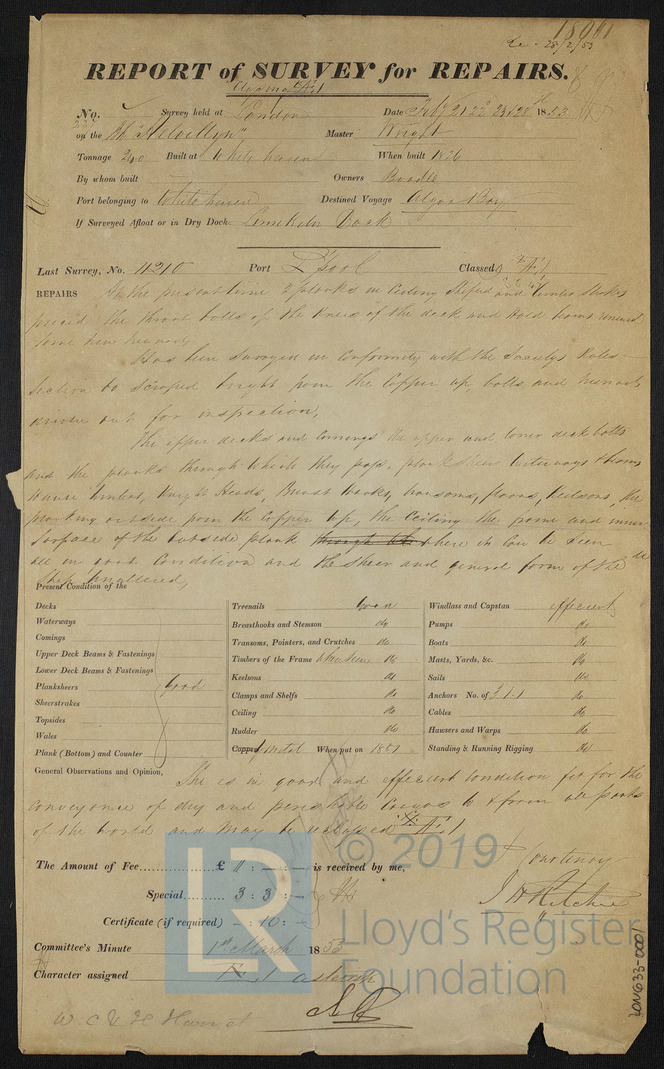 18961
28/2/53
REPORT of SURVEY for REPAIRS.
No. Survey held at London Date Feby 21 22 23 & 28 1853
on the "Llewellyn" Master Wright
Tonnage 240 Built at Whitehaven When built 1826
By whom built Owners
Port belonging to Whitehaven Destined Voyage Algoa Bay
If Surveyed Afloat or in Dry Dock Limekiln Dock
Last Survey, No. 11210 Port L'pool Classed Æ 1
REPAIRS At the present time 2 planks in Ceiling Shifted and Timber Strakes
the throat bolts of the Knees of the deck and Hold beams renewed
some new
Has been surveyed in Conformity with the Society's Rules
Section scraped bright from the Copper up, bolts and treenails
driven out for inspection,
The upper decks and Comings the upper and lower deck bolts
and the planks through which they pass, planksheers waterways & beams
hawse timbers, Knight Heads, Breast hooks, transoms, floors, keelsons, the
planking outside from the Copper up, the Ceiling the frame and inner
surface of the outside plank where it can be seen
all in good Condition and the Sheer and general form of the
Ship unaltered,
Present Condition of the
Decks
Waterways
Comings
Upper Deck Beams & Fastenings
Lower Deck Beams & Fastenings
Planksheers Good
Sheerstrakes
Topsides
Wales
Plank (Bottom) and Counter
Treenails Good
Breasthooks and Stemson do
Transoms, Pointers, and Crutches do
Timbers of the Frame where seen do
Keelsons do
Clamps and Shelfs do
Ceiling do
Rudder do
Copper Metal When put on 1851
Windlass and Capstan efficient
Pumps do
Boats do
Masts, Yards, &c. do
Sails do
Anchors No. of 3.1.1 do
Cables do
Hawsers and Warps do
Standing & Running Rigging do
General Observations and Opinion, She is in good and efficient condition fit for the
conveyance of dry and perishable Cargos to & from all parts
of the world and may be reclassed Æ 1
The Amount of Fee £ : - : - is received by me,
Special 3 : 3 : -
Certificate (if required) - : 10 : -
J Courtenay
J H Ritchie
Committee's Minute 1st March 1853
Character assigned Æ 1
© 2019
Lloyd's Register
Foundation
LR
LON633-0001